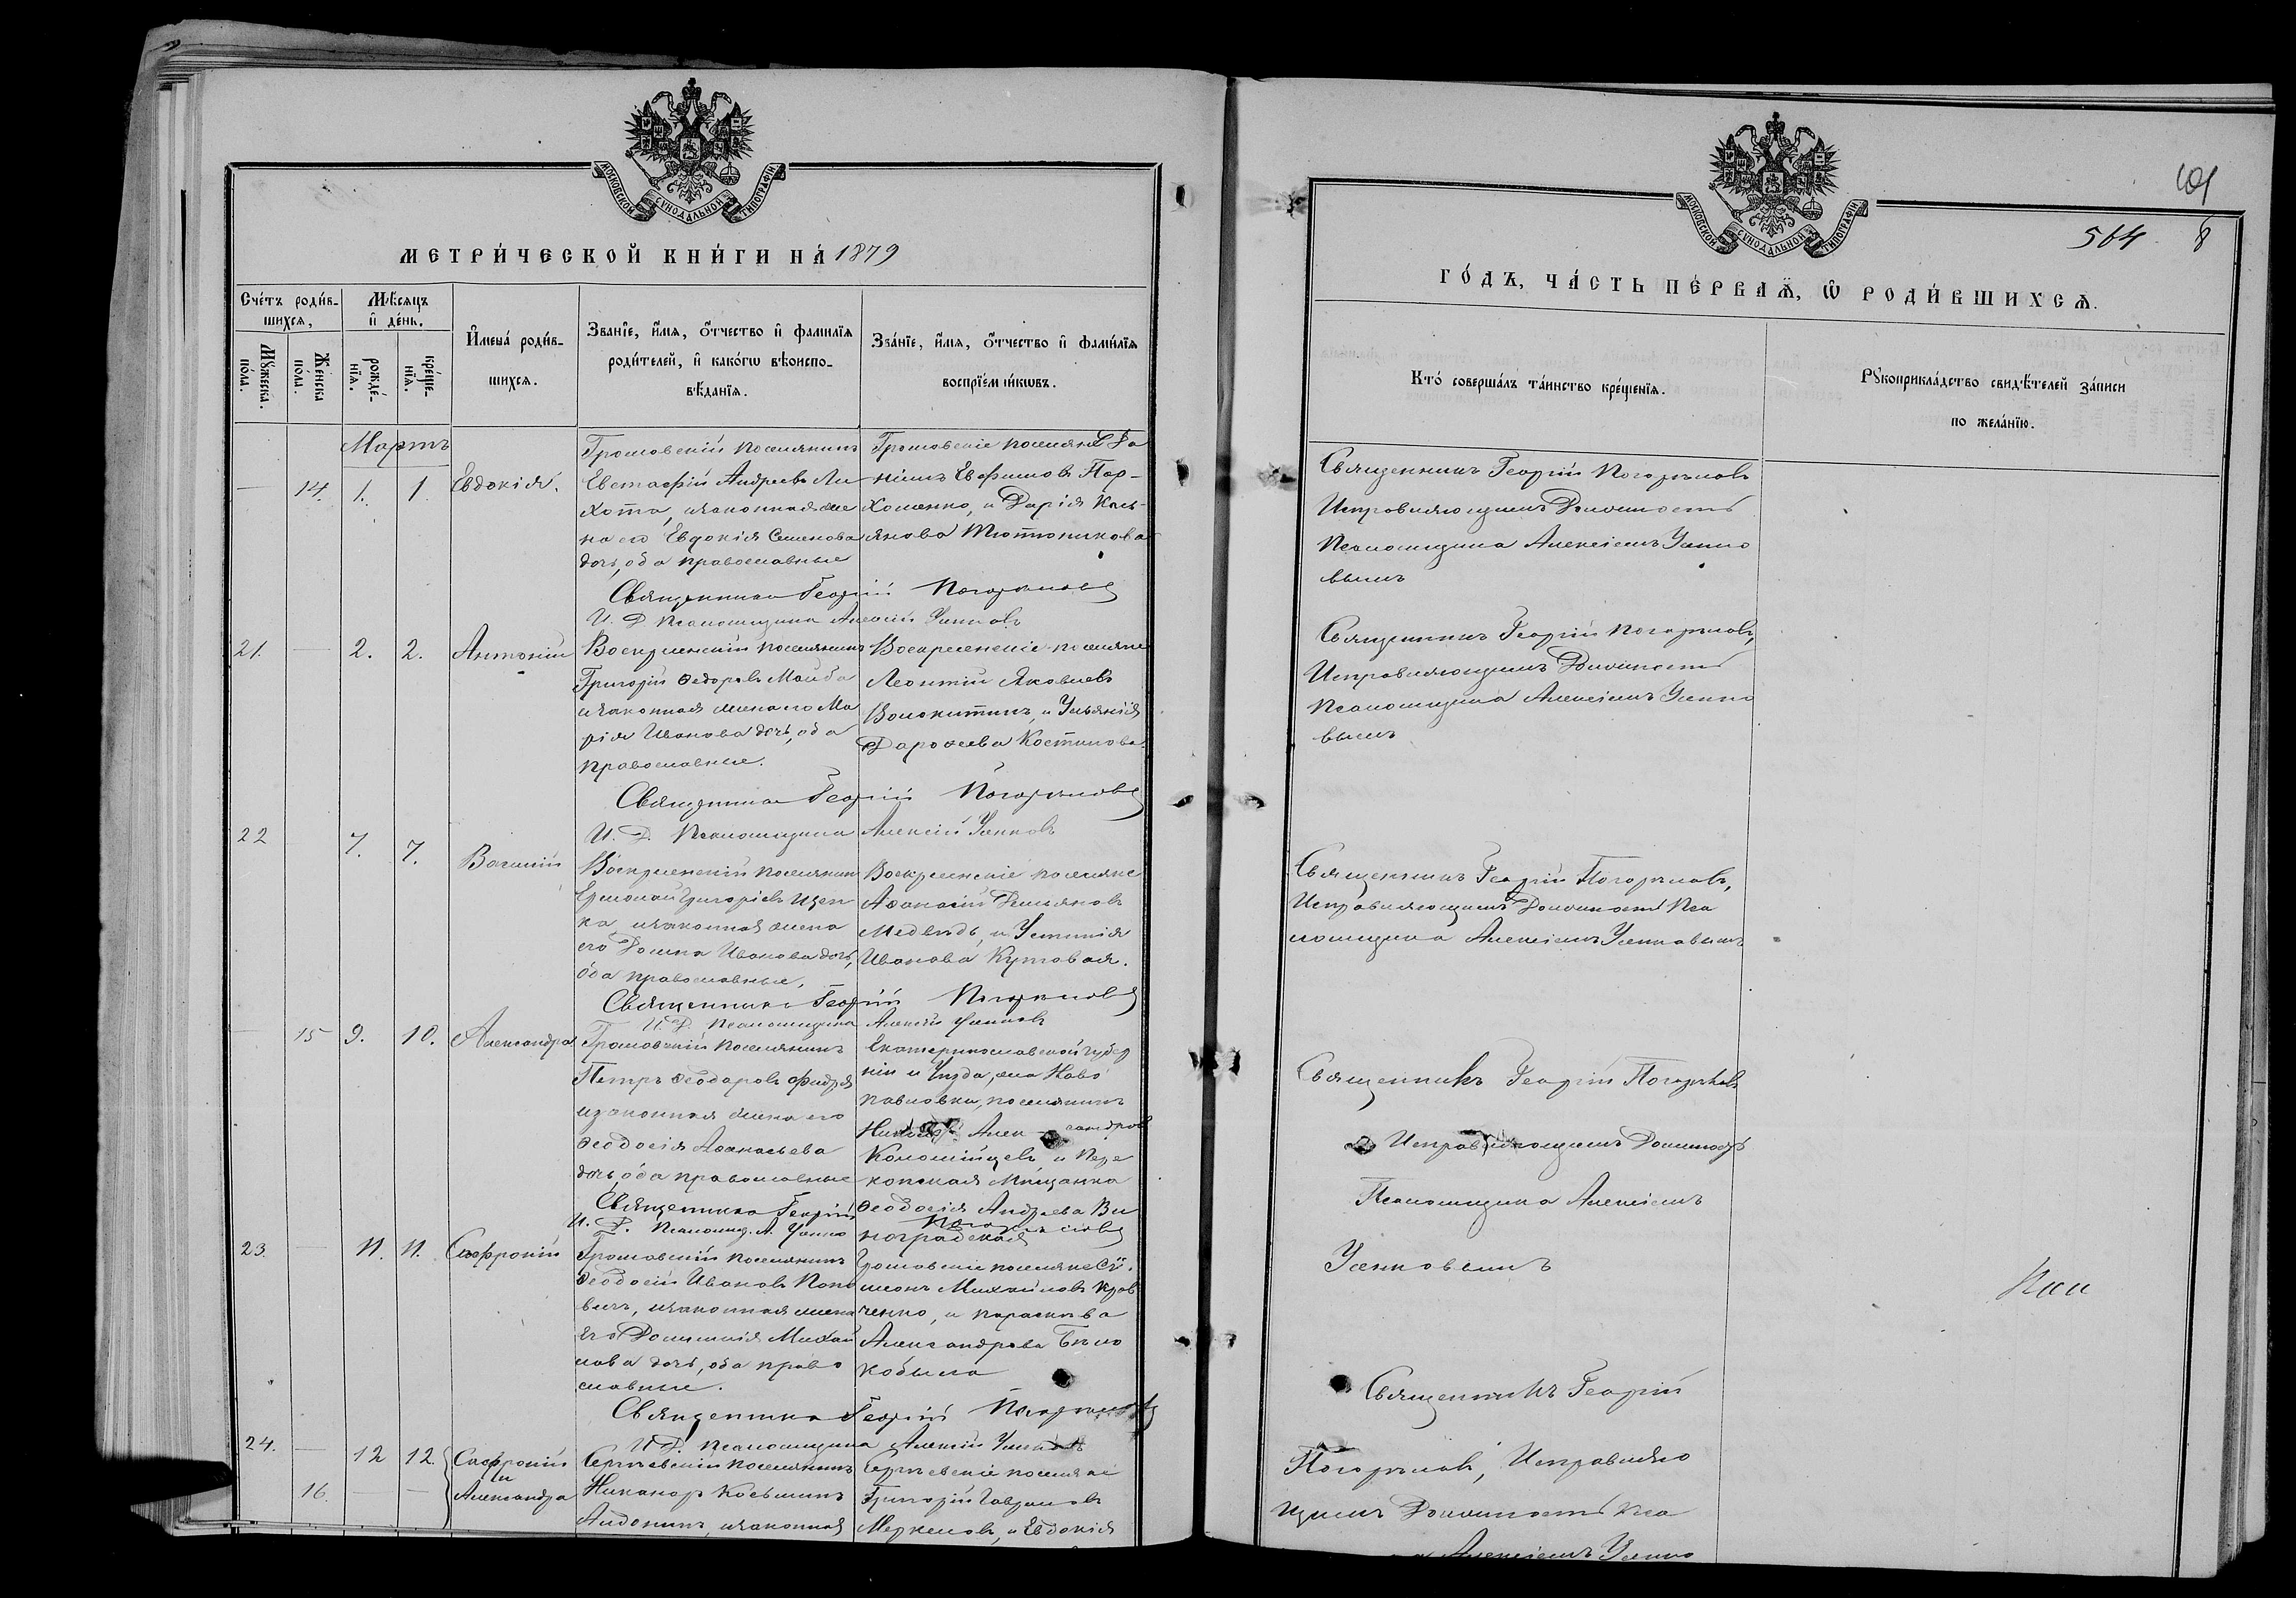 МОСКОВСКОЙ СѴНОДАЛЬНОЙ ТИПОГРАФІИ
МЕТРИ́ЧЕСКОЙ КНИ́ГИ НА́ 1879
Сче́тъ роди́в-
шихсѧ,
Мѣ́сѧцъ
и҆ де́нь.
Мꙋ́жеска.
по́ла.
Же́нска
по́ла.
рожде́-
нїѧ.
креще́-
нїѧ.
И҆мена́ роди́в-
шихсѧ.
Званїе, и҆́мѧ, ѻ҆́тчество и҆ фамилїѧ
роди́телей, и҆ како́гѡ вѣроиспо-
вѣ́данїѧ.
Зва́нїе, и҆́мѧ, ѻ҆́тчество и҆ фами́лїѧ
воспрїе́мникѡвъ.
Мартъ
— 14. 1. 1. Евдокія.
Громовскій поселянинъ
Евстафій Андреевъ Ли
хота, изаконная же
на его Евдокія Семенова
дочь, оба православные
Громовскіе поселяне Да
ніилъ Евфимовъ Пар-
хоменко, и Дарія Кась-
янова Тютюникова
Священникъ Георгій Погорѣловъ
И. Д. Псаломщика Алексій Усенковъ
21. — 2. 2. Антоній
Воскресенскій поселянинъ
Григорій Ѳедоровъ Майба
изаконная жена его Ма
рія Иванова дочь, оба
православные.
Воскресенскіе поселяне
Леонтій Яковлевъ
Волокитинъ, и Ульянія
Дароѳеева Костикова.
Священникъ Георгій Погорѣловъ
И. Д. Псаломщика Алексій Усенковъ
22 — 7. 7. Василій
Воскресенскій поселянин
Ермолай Григоріевъ Ицен
ка, изаконная жена
его Домна Иванова дочь,
оба православные,
Воскресенскіе поселяне
Аѳанасій Демьяновъ
Медвѣдь, и Устинія
Иванова Кутовая.
Священникъ Георгій Погорѣловъ
И. Д. Псаломщика Алексій Усенковъ
— 15 9. 10. Александра
Громовскій поселянинъ
Петръ Ѳеодоровъ Фидря
изаконная жена его
Ѳеодосія Аѳанасьева
дочь, оба православные
Екатеринославской губер
ніи и Уѣзда, села Ново
павловки, поселянинъ
Алек - сандров
Коломійцевъ, и Пере
копская Мѣщанка
Ѳеодосія Андреева Ви
ноградская
Священникъ Георгій Погорѣловъ
И. Д. Псаломщ. А. Усенко
23. — 11. 11. Софроній
Громовскій поселянинъ
Ѳеодосій Ивановъ Попо
вичъ, изаконная жена
его Домникія Михай
лова дочь, оба право
славные.
Громовскіе поселяне Си
меонъ Михайловъ Крав
ченко, и Параскева
Александрова Бѣло
кобыла
Священникъ Георгій Погорѣловъ
И. Д. Псаломщика Алексій Усенковъ
24. — 12 12. Софроній
и
16. — — Александра
Сергѣевскій поселянинъ
Никаноръ Косьминъ
Андонинъ, изаконная
Сергѣевскіе поселяне
Григорій Гавриловъ
Меркеловъ, и Евдокія
МОСКОВСКОЙ СѴНОДАЛЬНОЙ ТИПОГРАФІИ
564
8
ГО́ДЪ, ЧА́СТЬ ПЕ́РВАѦ, Ѡ҆ РОДИ́ВШИХСѦ.
Кто́ соверша́лъ та́инство креще́нїѧ.
Рꙋкоприкла́дство свидѣ́телей за́писи
по жела́нїю.
Священникъ Георгій Погорѣловъ
Исправляющимъ Должность
Псаломщика Алексіемъ Усенко
вымъ
Священникъ Георгій Погорѣловъ,
Исправляющимъ Должность
Псаломщика Алексіемъ Усенко
вымъ
Священникъ Георгій Погорѣловъ,
Исправляющимъ Должность Пса
ломщика Алексіемъ Усенковымъ
Священникъ Георгій Погорѣловъ
Исправляющимъ Должность
Псаломщика Алексіемъ
Усенковымъ
Священникъ Георгій
Погорѣловъ, Исправляю
щимъ Должность Пса
Алексіемъ Усенко